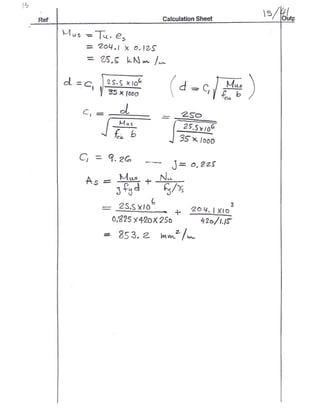 15
15/41
Ref Calculation Sheet Outp
Mus = Tu. es
= 204.1 x 0.125
= 25.5 kN m /m
d = C1 √ 25.5 x10⁶ / 35 x 1000 ( d = C1 √ Mus / fcu b )
C1 = d / √ Mus / fcu b = 250 / √ 25.5x10⁶ / 35 x 1000
C1 = 9.26 — j = 0.825
As = Mus / j fy d + Nu / fy/γs
= 25.5 x10⁶ / 0.825 x 420 x 250 + 204.1 x10³ / 420/1.15
= 853.2 mm²/m